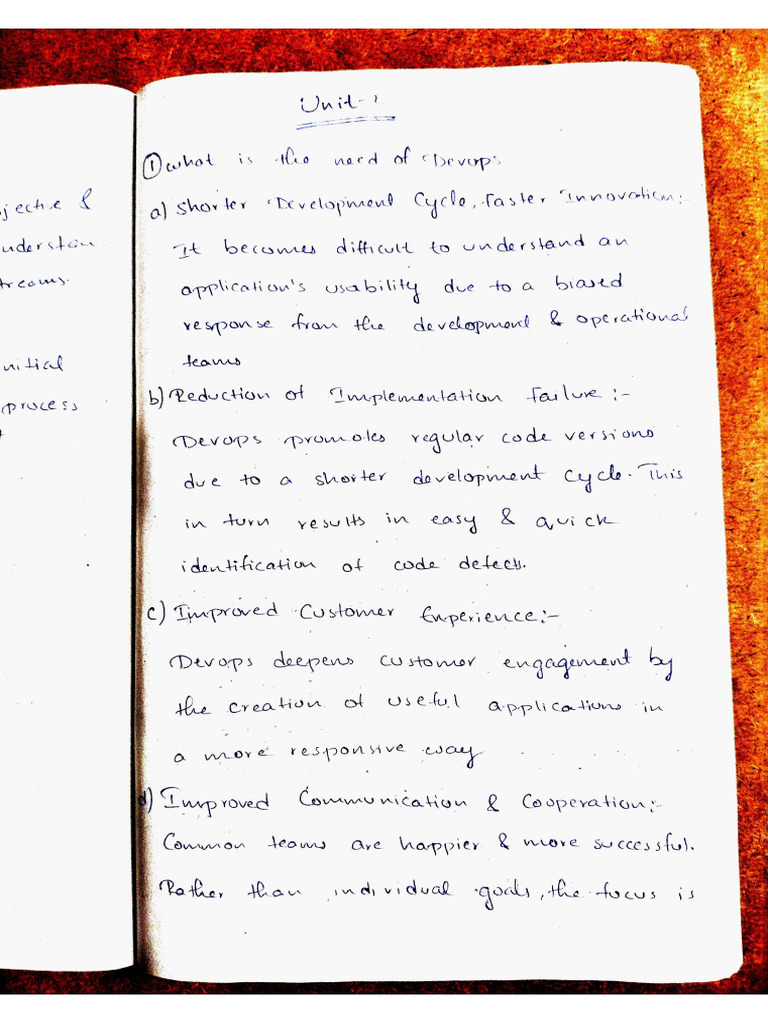 jective &
understan
treams.
nitial
process
Unit-1
① What is the need of Devops
a) Shorter Development Cycle, Faster Innovation:-
It becomes difficult to understand an
application's usability due to a biased
response from the development & operational
teams
b) Reduction of Implementation Failure :-
Devops promotes regular code versions
due to a shorter development cycle. This
in turn results in easy & quick
identification of code defects.
c) Improved Customer Experience:-
Devops deepens customer engagement by
the creation of useful applications in
a more responsive way
d) Improved Communication & Cooperation:-
Common teams are happier & more successful.
Rather than individual goals, the focus is